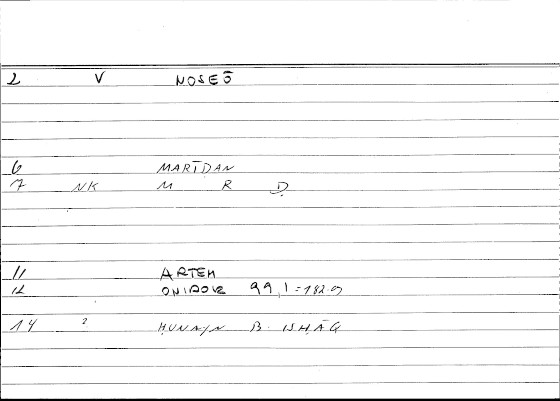 2 V NOSEŌ
6 MARĪDAN
7 NK M R D
11 ARTEM
12 99,1 = 182.9
14 ? ḤUNAYN B. ISḤĀQ